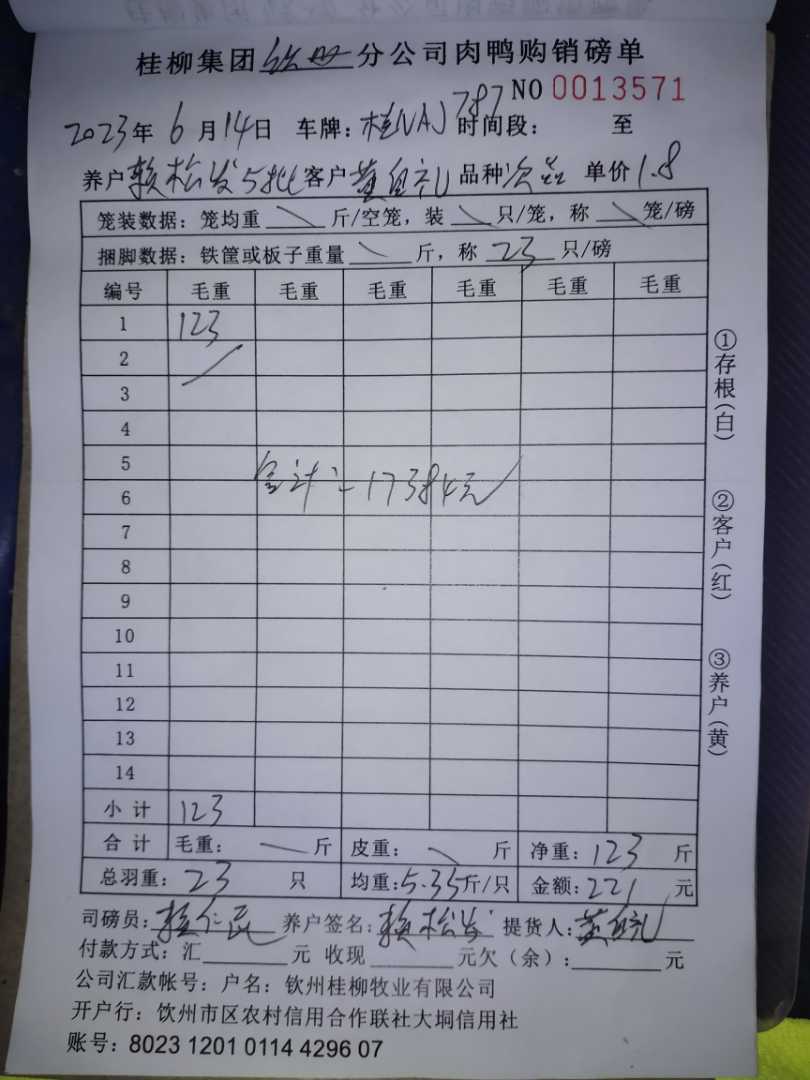 桂柳集团钦州分公司肉鸭购销磅单
NO 0013571
2023年 6月14日 车牌：桂NAJ787 时间段： 至
养户 赖松发5批 客户 黄自礼 品种 次品 单价 1.8
笼装数据：笼均重 斤/空笼，装 只/笼，称 笼/磅
捆脚数据：铁筐或板子重量 斤，称 23 只/磅
编号 毛重 毛重 毛重 毛重 毛重 毛重
1 123
2
3
4
5
6
合计：17384元
7
8
9
10
11
12
13
14
小计 123
合计 毛重： 斤 皮重： 斤 净重：123 斤
总羽重：23 只 均重：5.35斤/只 金额：221 元
司磅员： 养户签名：赖松发 提货人：黄自礼
付款方式：汇 元 收现 元欠（余）： 元
公司汇款帐号：户名：钦州桂柳牧业有限公司
开户行：饮州市区农村信用合作联社大垌信用社
账号：8023 1201 0114 4296 07
①存根（白）
②客户（红）
③养户（黄）